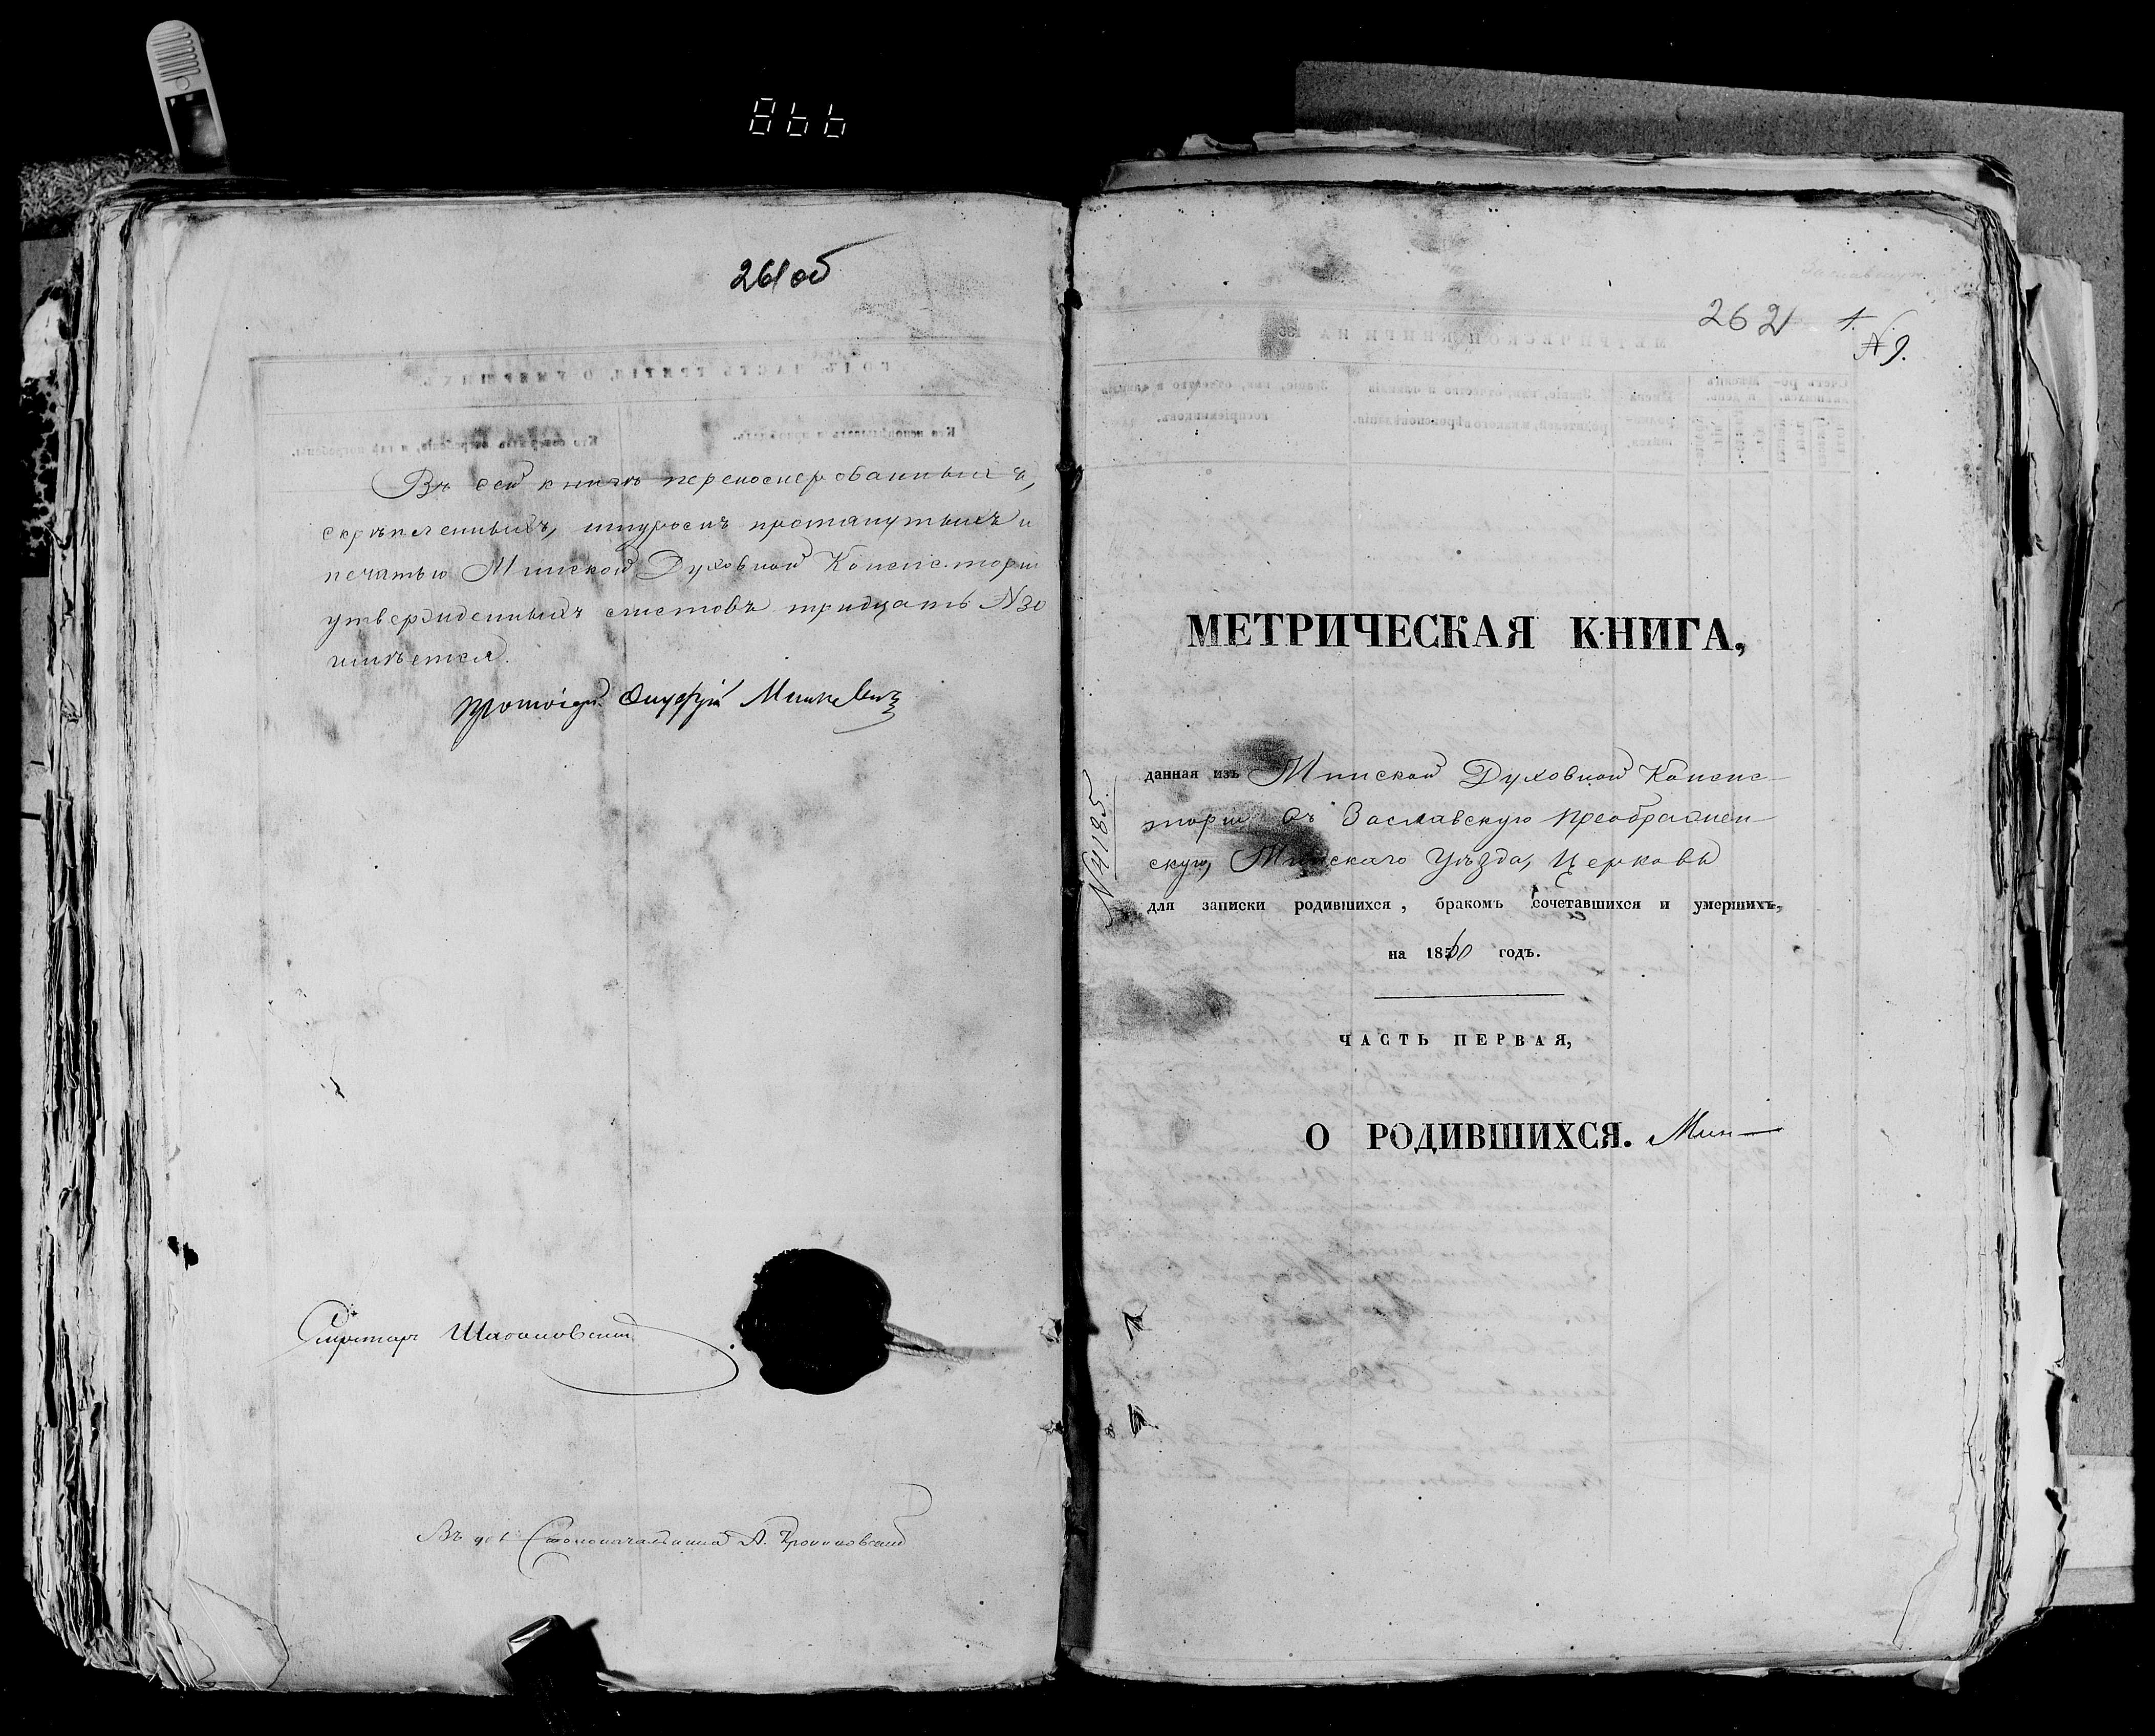 866
261об
Въ сей книгѣ перенумерованныхъ,
скрѣпленныхъ, шнуромъ протянутыхъ и
печатью Минской Духовной Консисторіи
утвержденныхъ листовъ тридцать №30
имѣется.
Протоіер. Онуфрій
Секретарь
Въ Столоначальника А.
262 1.
№ 9.
МЕТРИЧЕСКАЯ КНИГА,
№ 4185.
данная изъ Минской Духовной Консис-
торіи въ Заславскую Преображен-
скую, Минскаго Уѣзда, Церковь
для записки родившихся, бракомъ сочетавшихся и умершихъ,
на 1860 годъ.
ЧАСТЬ ПЕРВАЯ,
О РОДИВШИХСЯ. Мин-